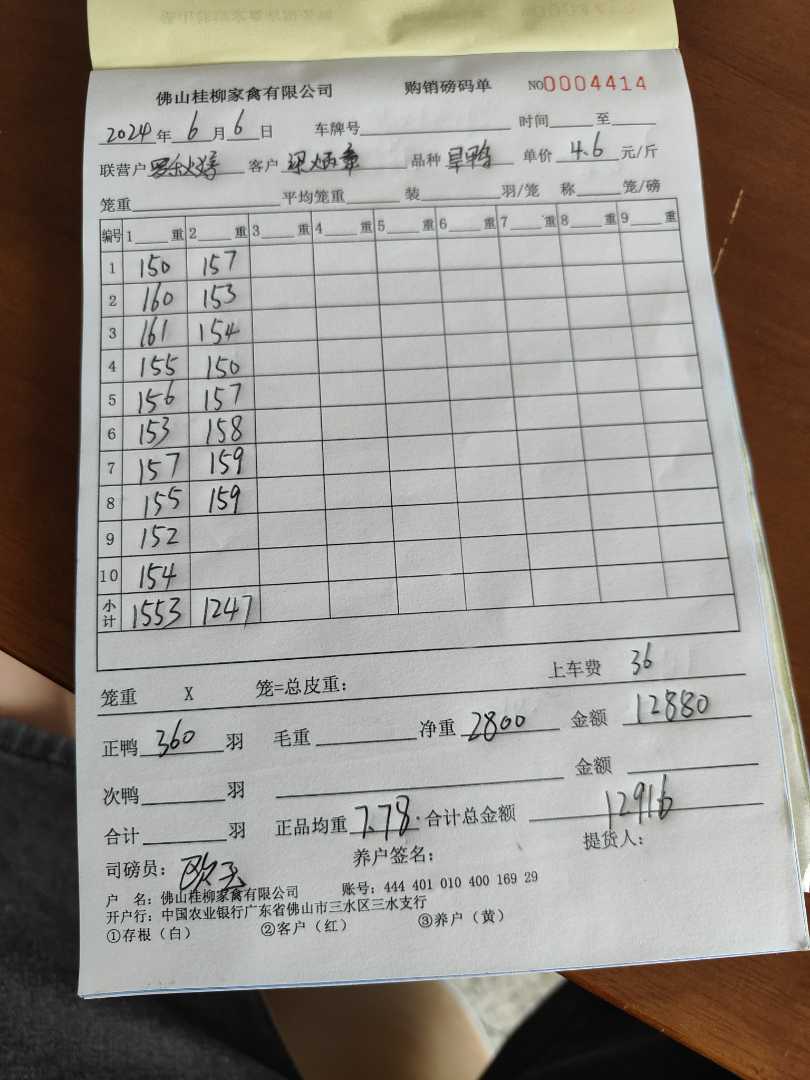 佛山桂柳家禽有限公司 购销磅码单 NO0004414
2024年 6月 6日 车牌号 时间 至
联营户 罗秋婷 客户 梁炳章 品种 旱鸭 单价 4.6 元/斤
笼重 平均笼重 装 羽/笼 称 笼/磅
编号 1 重 2 重 3 重 4 重 5 重 6 重 7 重 8 重 9 重
1 150 157
2 160 153
3 161 154
4 155 150
5 156 157
6 153 158
7 157 159
8 155 159
9 152
10 154
小计 1553 1247
笼重 X 笼=总皮重: 上车费 36
正鸭 360 羽 毛重 净重 2800 金额 12880
次鸭 羽 金额
合计 羽 正品均重 7.78 合计总金额 12916
司磅员: 养户签名: 提货人:
户 名: 佛山桂柳家禽有限公司 账号: 444 401 010 400 169 29
开户行: 中国农业银行广东省佛山市三水区三水支行
①存根(白) ②客户(红) ③养户(黄)